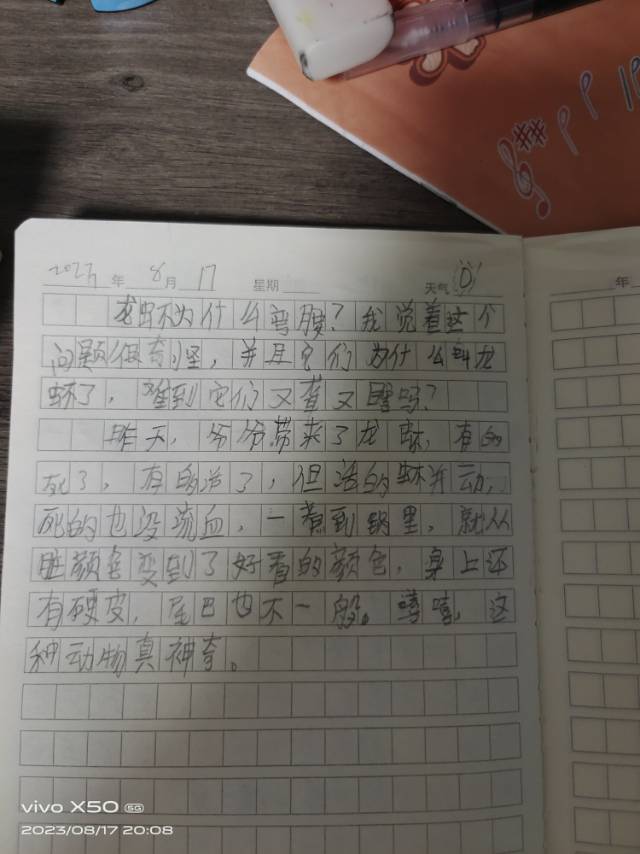 2023年 8月 17 星期 天气
年
龙虾为什么弯腰?我觉着这个
问题很奇怪,并且它们为什么叫龙
虾了,难到它们又聋又瞎吗?
昨天,爷爷带来了龙虾,有的
死了,有的活了,但活的虾并动,
死的也没流血,一煮到锅里,就从
脏颜色变到了好看的颜色,身上还
有硬皮,尾巴也不一般。嘻嘻,这
种动物真神奇。
vivo X50 5G
2023/08/17 20:08